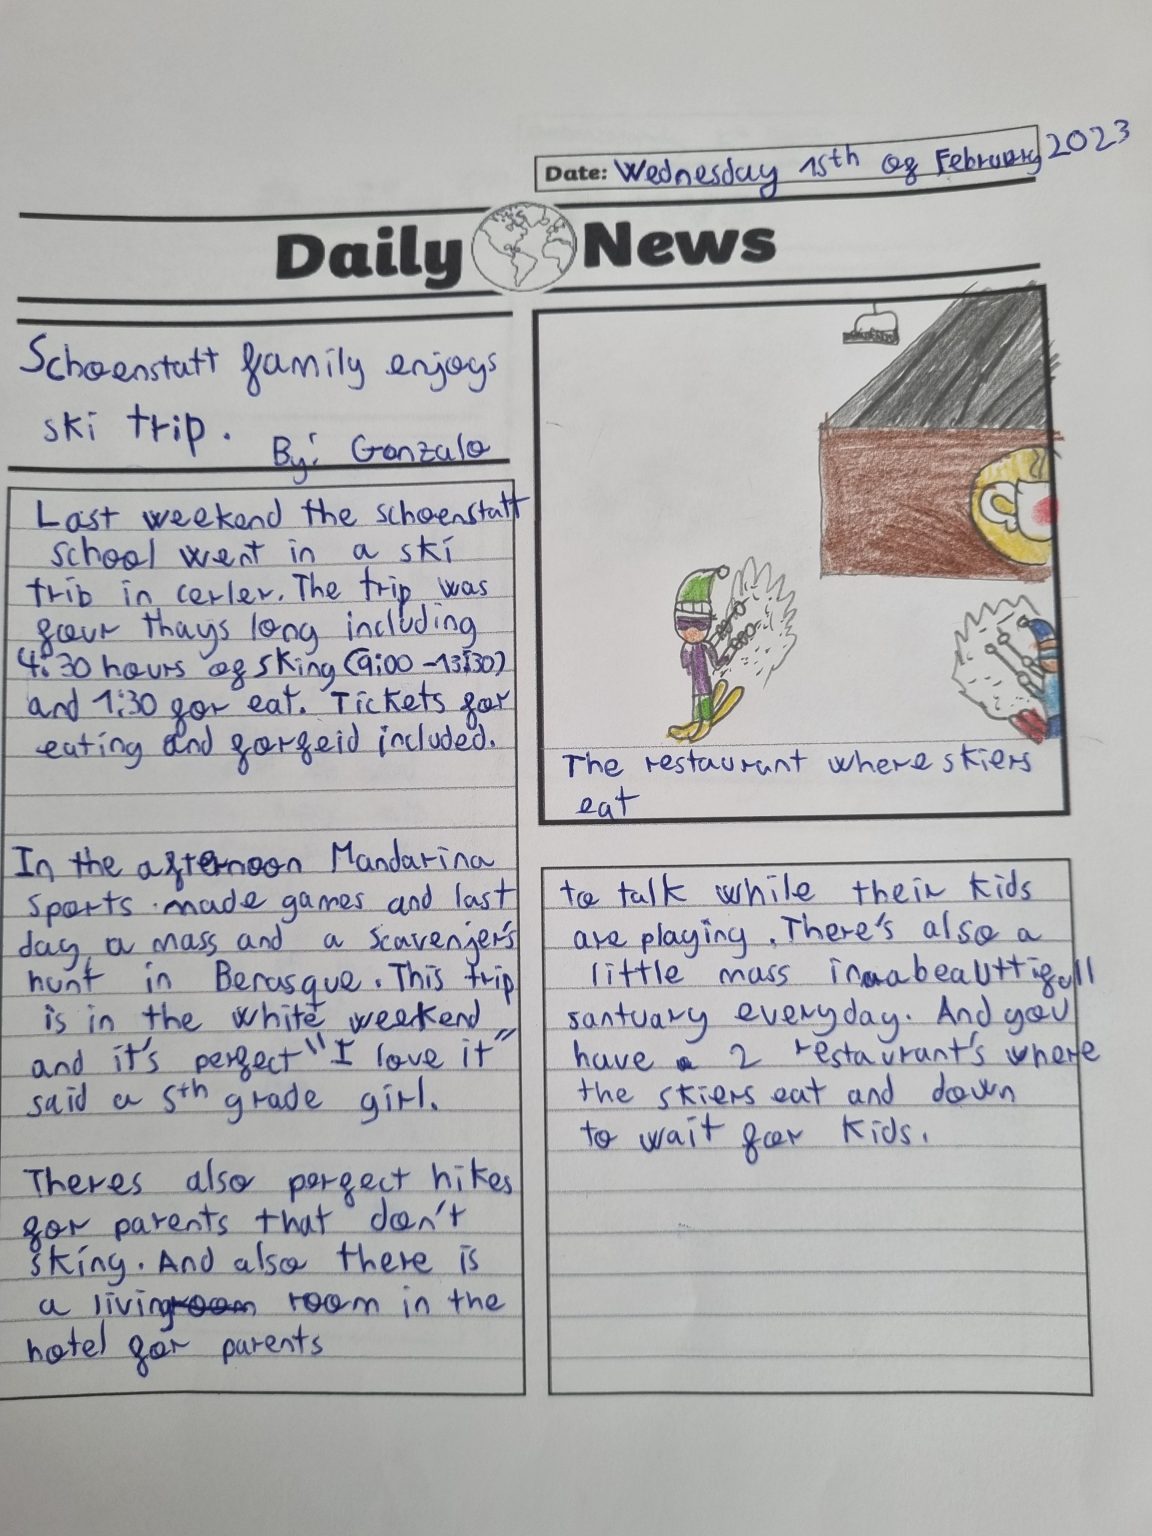 Date: Wednesday 15th of February 2023
Daily News
Schoenstatt family enjoys
ski trip.
By: Gonzalo
Last weekend the schoenstatt
school went in a ski
trib in cerler. The trip was
four thays long including
4:30 hours of sking (9:00 -13:30)
and 1:30 for eat. Tickets for
eating and forfeid included.
In the afternoon Mandarina
sports made games and last
day a mass and a scavenjer's
hunt in Benasque. This trip
is in the white weekend
and it's perfect "I love it"
said a 5th grade girl.
Theres also perfect hikes
for parents that don't
sking. And also there is
a living room in the
hotel for parents
The restaurant where skiers
eat
to talk while their kids
are playing. There's also a
little mass in a beauttifull
santuary everyday. And you
have 2 restaurant's where
the skiers eat and down
to wait foor kids.